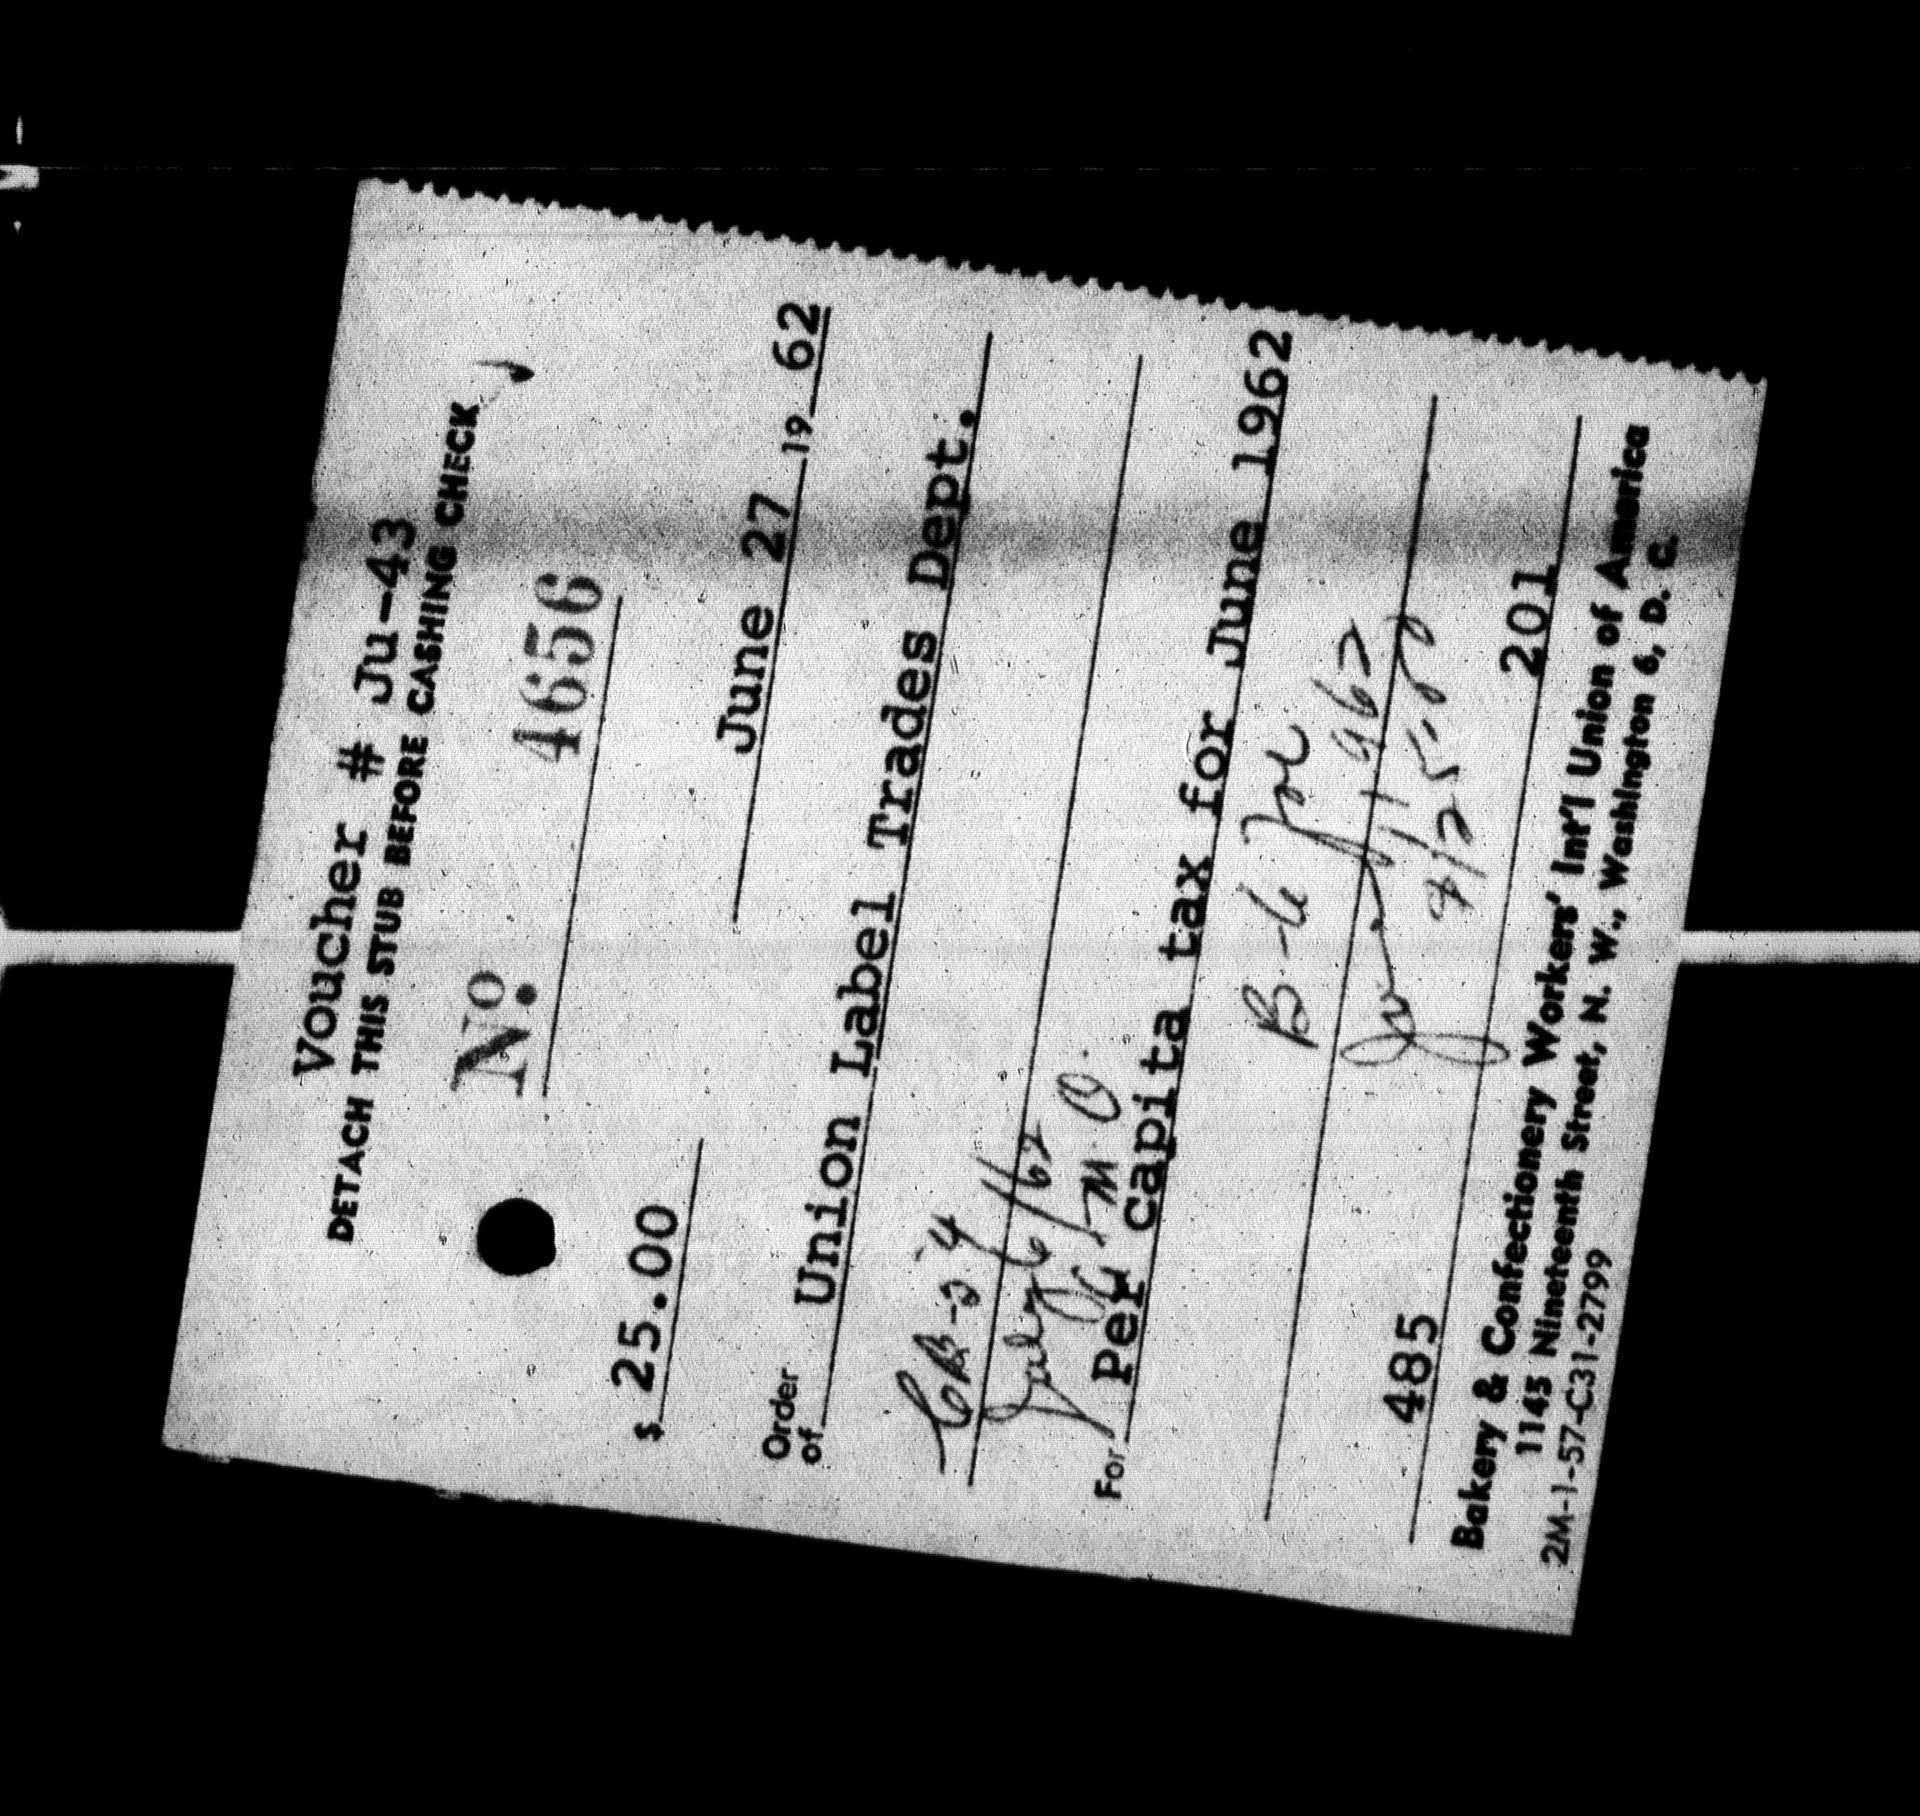 Voucher # Ju-43
DETACH THIS STUB BEFORE CASHING CHECK
No. 4656
$ 25.00
June 27 19 62
Order of Union Label Trades Dept.
CB-24
July 6/62
M O.
For Per capita tax for June 1962
B-6
June 1962
$25.00
485 201
Bakery & Confectionery Workers' Int'l Union of America
1145 Nineteenth Street, N. W., Washington 6, D. C.
2M-1-57-C31-2799